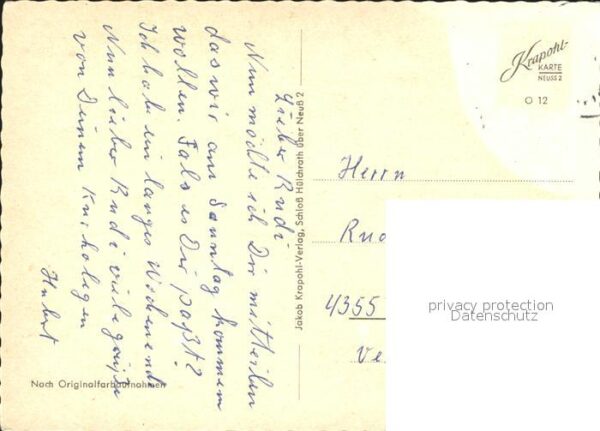 Lieber Rudi
Nun möchte ich Dir mitteilen
das wir am Sonntag kommen
wollen. Fals es Dir paßt?
Ich habe ein langes Wochenend
Nun lieber Rudi viele Grüße
von Deinem Kurkolegen
Hubert
Nach Originalfarbaufnahmen
Jakob Krapohl-Verlag, Schloß Hülchrath über Neuß 2
Krapohl-
KARTE
NEUSS 2
O 12
Herrn
4355
privacy protection
Datenschutz